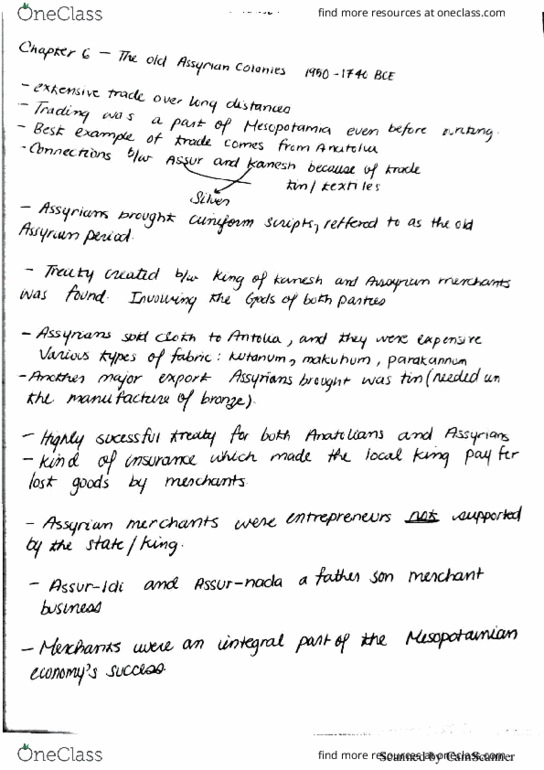 OneClass
find more resources at oneclass.com
Chapter 6 – The old Assyrian Colonies 1950-1740 BCE
- exhensive trade over long distances
- Trading was a part of Mesopotamia even before writing.
- Best example of trade comes from Anatolia
- Connections b/w Assur and Kanesh because of trade
Silver
tin/textiles
- Assyrians brought cuniform scripts, reffered to as the old
Assyrian period.
- Treaty created b/w king of kanesh and Assyrian merchants
was found. Involving the Gods of both parties
- Assyrians sold cloth to Antolia, and they were expensive
Various types of fabric: kutanum, makuhum, parakannum
- Another major export Assyrians brought was tin (needed in
the manufacture of bronze).
- Highly sucessful treaty for both Anatolians and Assyrians
- kind of insurance which made the local king pay for
lost goods by merchants.
- Assyrian merchants were entrepreneurs not supported
by the state/king.
- Assur-idi and Assur-nada a father son merchant
business
- Merchants were an integral part of the Mesopotamian
economy's success
OneClass
find more resources at oneclass.com
Scanned by CamScanner